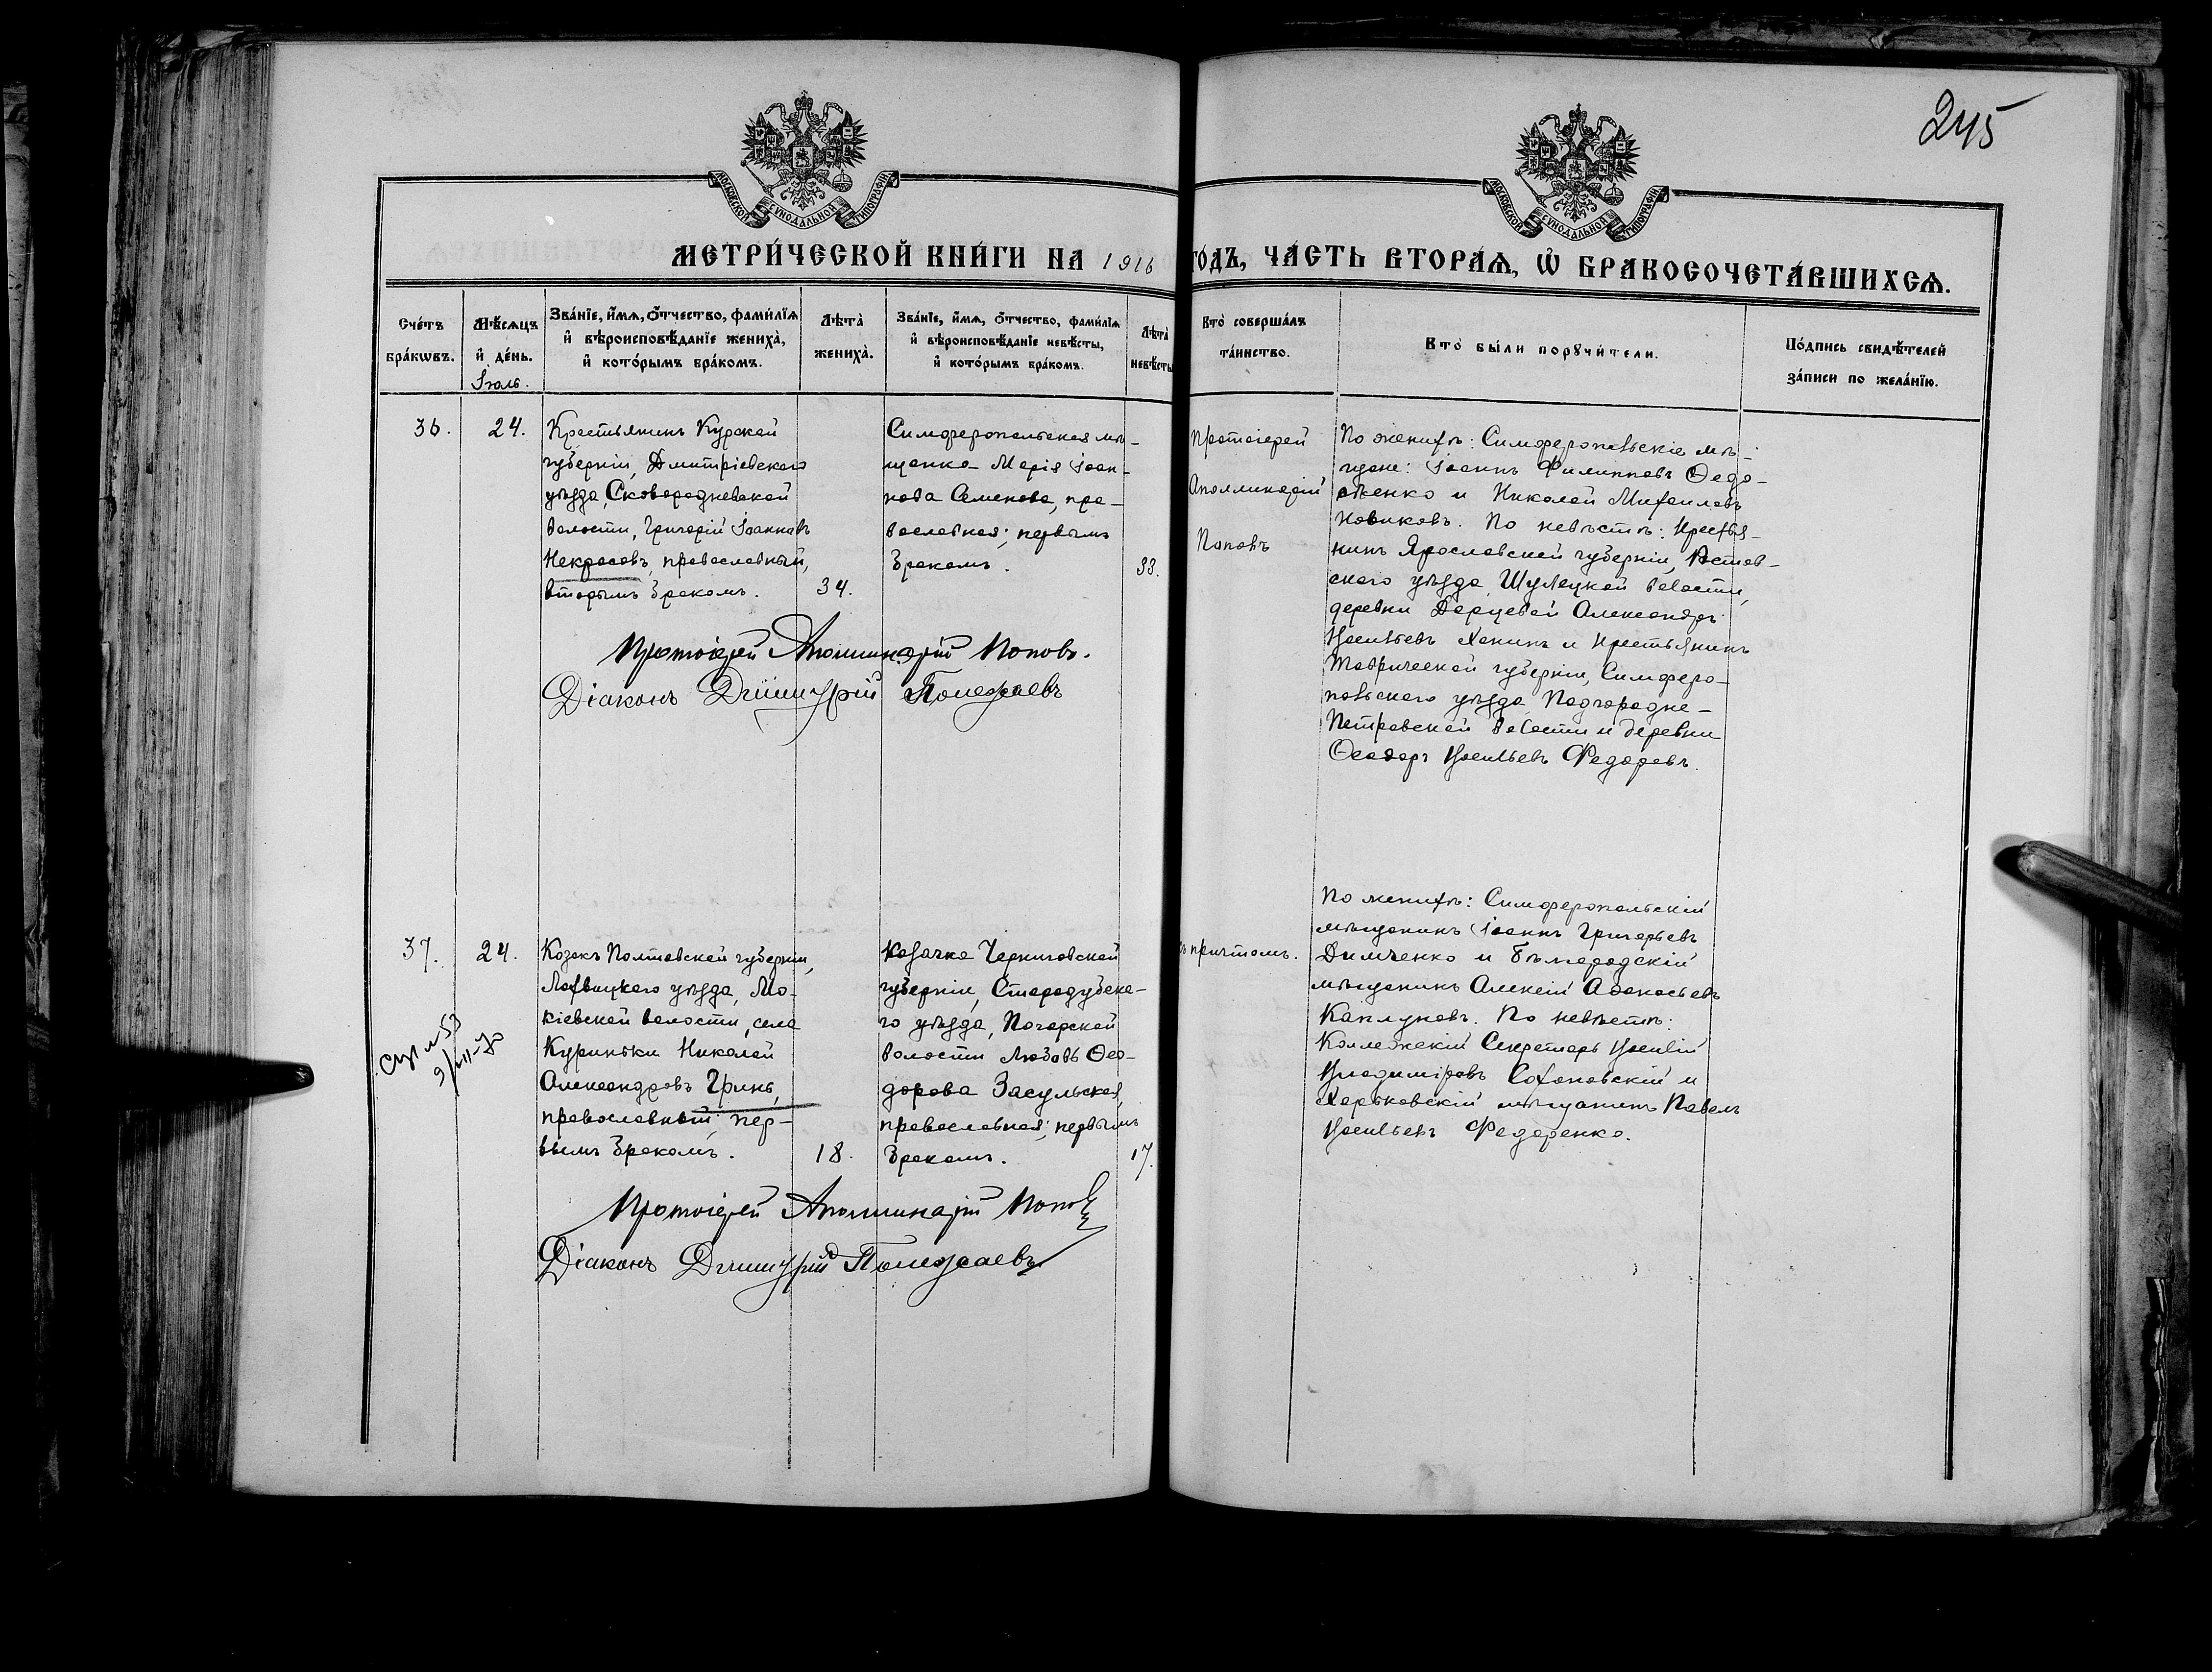 245
МОСКОВСКОЙ СѴНОДАЛЬНОЙ ТИПОГРАФІИ
МОСКОВСКОЙ СѴНОДАЛЬНОЙ ТИПОГРАФІИ
МЕТРИ́ЧЕСКОЙ КНИ́ГИ НА 1916 ГО́ДЪ, ЧА́СТЬ ВТОРА́Ѧ, Ѽ БРАКОСОЧЕТА́ВШИХСѦ.
Сче́тъ
бра́кѡвъ.
Мѣ́сѧцъ
и҆ де́нь.
Іюль.
Зва́нїе, и҆́мѧ, ѻ҆́тчество, фами́лїѧ
и҆ вѣроисповѣ́данїе жениха̀,
и҆ кото́рымъ бра́комъ.
Лѣта̀
жениха̀.
Зва́нїе, и҆́мѧ, ѻ҆́тчество, фами́лїѧ
и҆ вѣроисповѣ́данїе невѣ́сты,
и҆ кото́рымъ бра́комъ.
Лѣта̀
невѣ́сты
Кто̀ соверша́лъ
та́инство.
Кто̀ бы́ли порꙋчи́тели.
По́дпись свидѣ́телей
за́писи по жела́нїю.
36.
24.
Крестьянинъ Курской
губерніи, Дмитріевскаго
уѣзда, Сковородневской
волости, Григорій Іоанновъ
Некрасовъ, православный,
вторымъ бракомъ.
34.
Симферопольская мѣ-
щанка Марія Іоан-
нова Семенова, пра-
вославная; первымъ
бракомъ.
33.
Протоіерей
Аполлинарій
Поповъ
По женихѣ: Симферопольскіе мѣ-
щане: Іоаннъ Филипповъ Ѳедо-
сѣенко и Николай Михаиловъ
Новиковъ. По невѣстѣ: крестья-
нинъ Ярославской губерніи, Ростов-
скаго уѣзда, Шулецкой волости,
деревни Александръ
Васильевъ Ханинъ и крестьянинъ
Таврической губерніи, Симферо-
польскаго уѣзда Подгородне-
Петровской волости и деревни
Ѳеодоръ Васильевъ Федоровъ.
Протоіерей Аполлинарій Поповъ.
Діаконъ Димитрій Полежаевъ
37.
24.
Козакъ Полтавской губерніи,
Лохвицкаго уѣзда, Мо-
кіевской волости, села
Куриньки Николай
Александровъ Гринь,
православный; пер-
вымъ бракомъ.
18.
Козачка Черниговской
губерніи, Стародубска-
го уѣзда, Погарской
волости Любовь Ѳео-
дорова Засульская,
православная; первымъ
бракомъ.
17.
съ причтомъ.
По женихѣ: Симферопольскій
мѣщанинъ Іоаннъ Григорьевъ
Димченко и Бѣлгородскій
мѣщанинъ Алексій Аѳанасьевъ
Каплуновъ. По невѣстѣ:
Коллежскій Секретарь Василій
Владиміровъ Сохоновскій и
Харьковскій мѣщанинъ Павелъ
Васильевъ Федоренко.
Протоіерей Аполлинарій Поповъ
Діаконъ Димитрій Полежаевъ